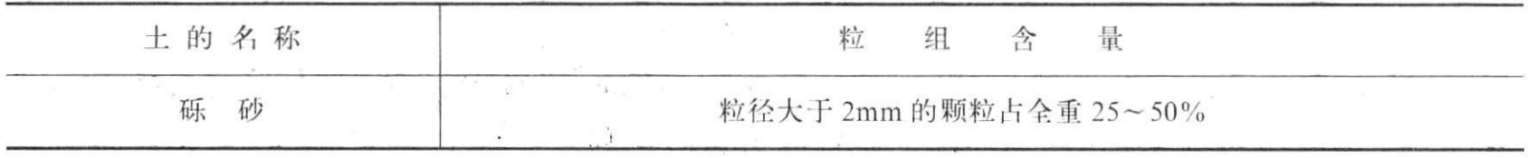 土的名称 粒组含量
砾砂 粒径大于2mm的颗粒占全重25~50%